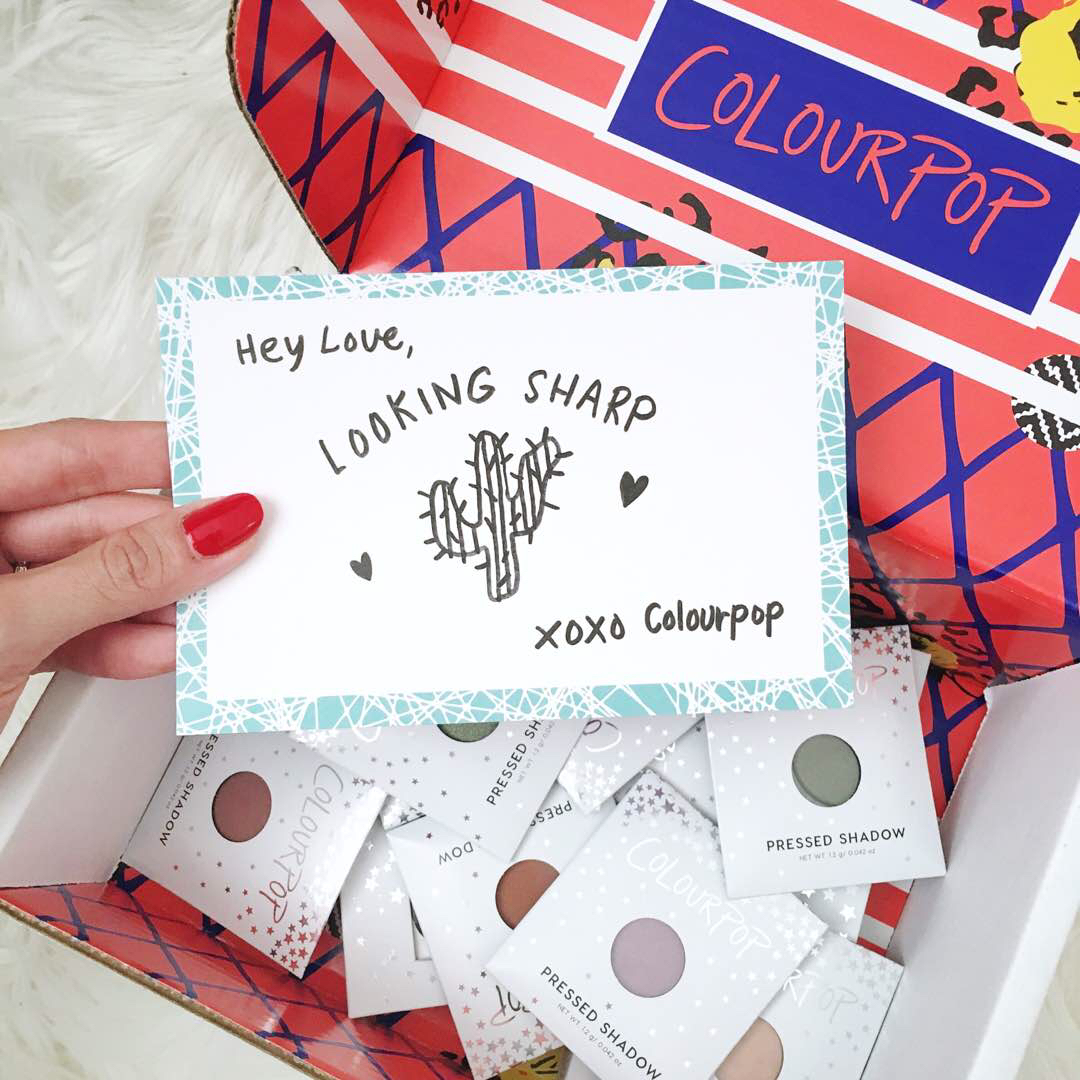 COLOURPOP
Hey Love,
LOOKING SHARP
xoxo Colourpop
PRESSED SHADOW
COLOURPOP
PRESSED SH
OP
PRESSED SHADOW
NET WT. 1.2 g/ 0.042 oz
COLOURPOP
PRESSED SHADOW
NET WT. 1.2 g/ 0.042 oz